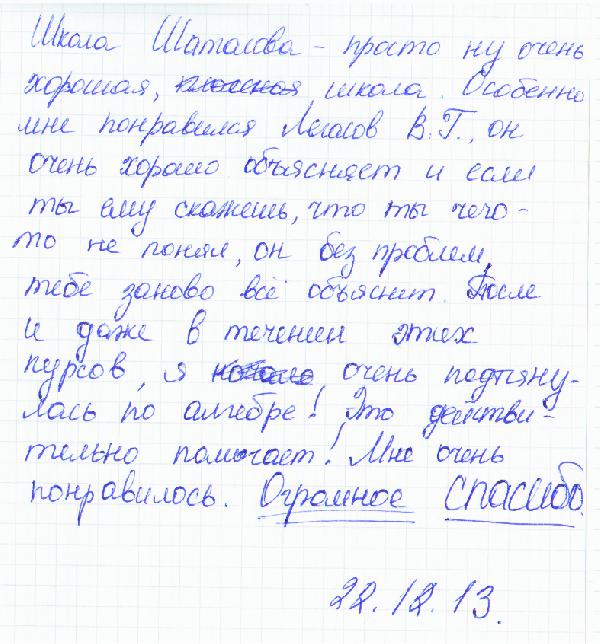 Школа Шаталова - просто ну очень
хорошая, классная школа. Особенно
мне понравился Легасов В.Г., он
очень хорошо объясняет и если
ты ему скажешь, что ты чего-
то не понял, он без проблем,
тебе заново всё объяснит. После
и даже в течении этих
курсов, я очень подтяну-
лась по алгебре! Это действи-
тельно помогает! Мне очень
понравилось. Огромное спасибо.
22.12.13.